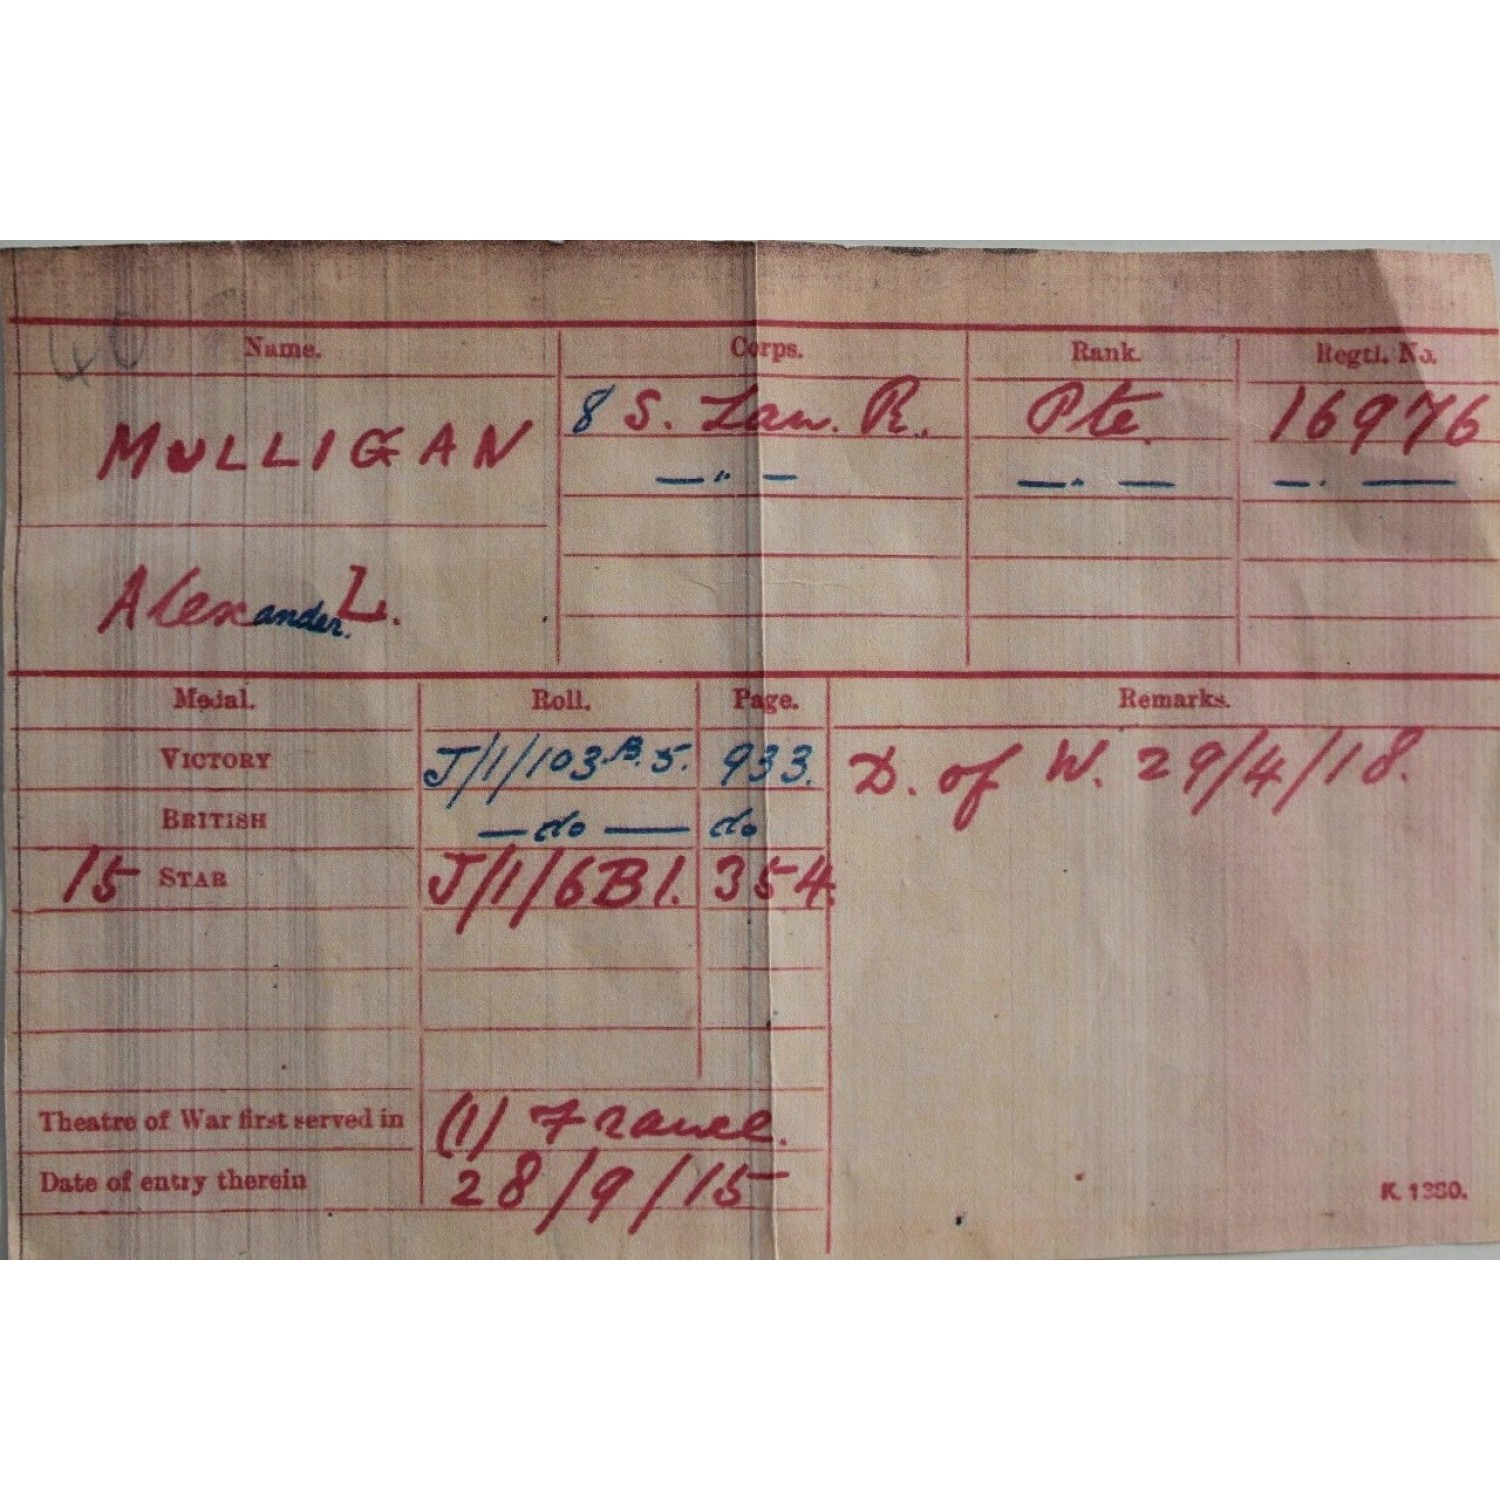 Name. Corps. Rank. Regtl. No.
MULLIGAN 8 S. Lan. R. Pte. 16976
— " — — " — — " —
Alexander. L.
Medal. Roll. Page. Remarks.
VICTORY J/1/103.B.5. 933. D. of W. 29/4/18.
BRITISH — do — do
15 STAR J/1/6B1. 354.
Theatre of War first served in (1) France.
Date of entry therein 28/9/15
K. 1380.